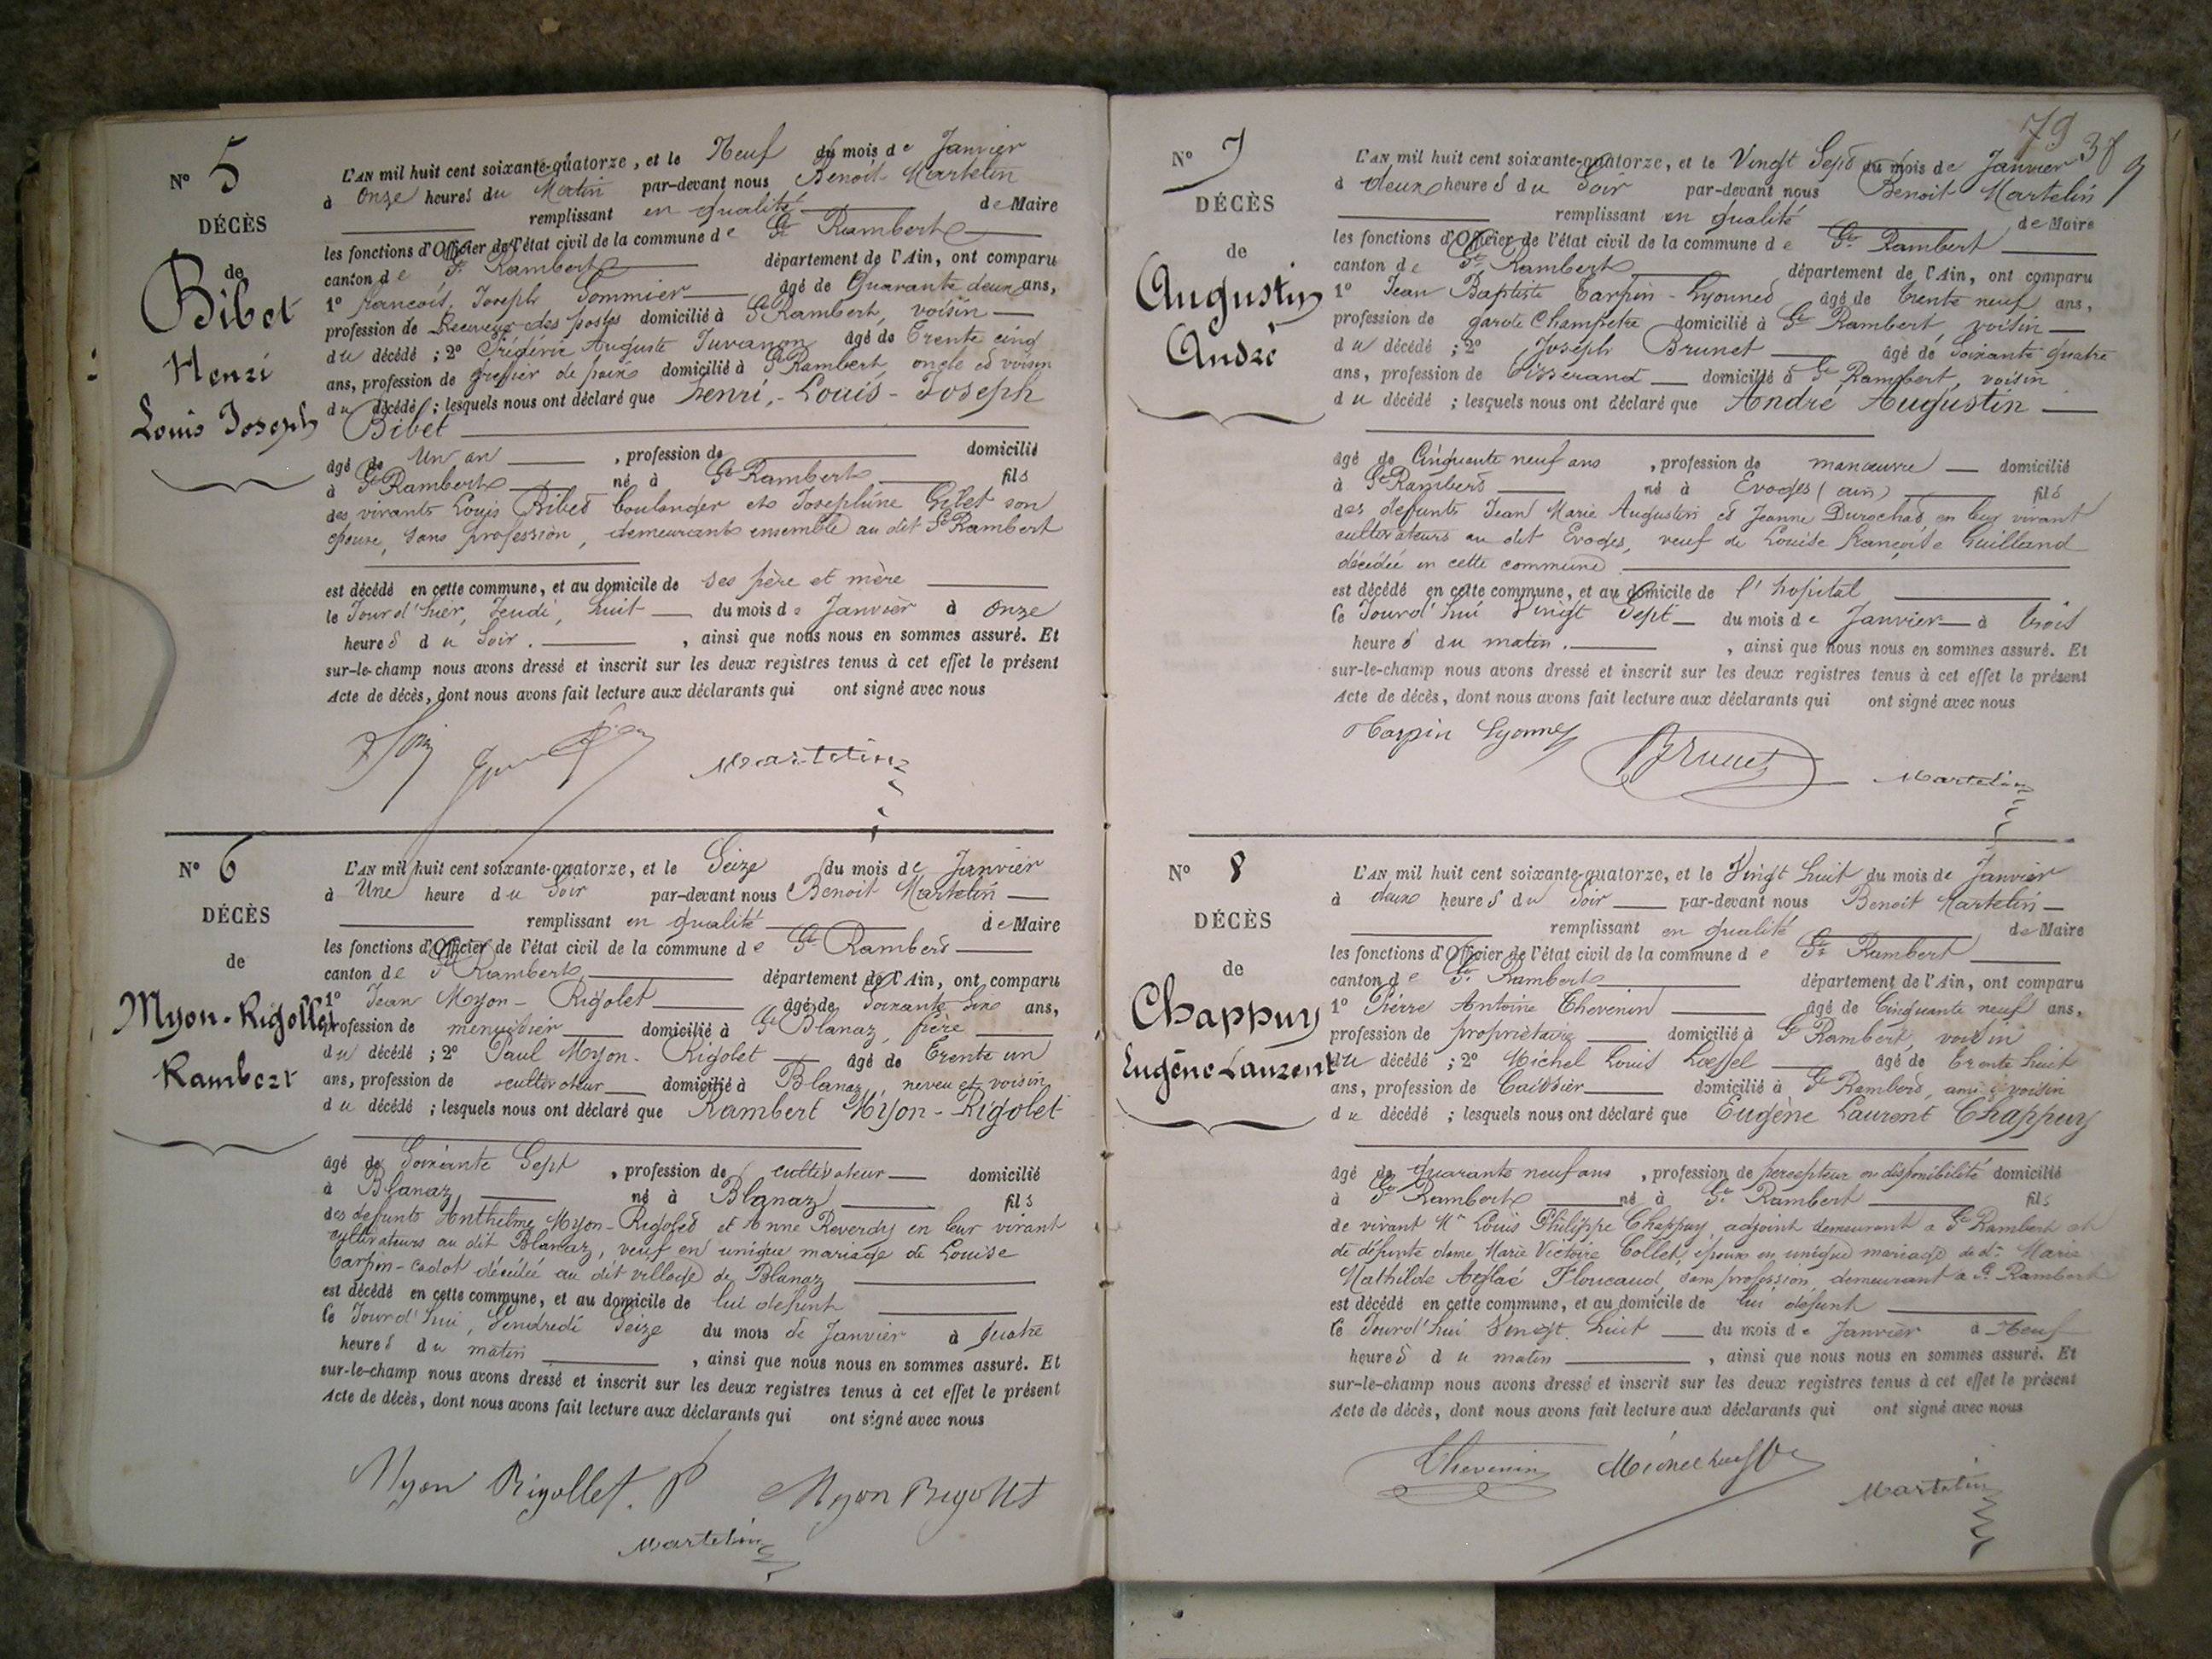 N° 5
DÉCÈS
de
Bibet
Henri
Louis Joseph
L'AN mil huit cent soixante-quatorze, et le Neuf du mois de Janvier
à onze heures du Matin par-devant nous Benoit Martelin
remplissant en qualité de Maire
les fonctions d'Officier de l'état civil de la commune de St Rambert
canton de St Rambert département de l'Ain, ont comparu
1° francois, Joseph Sommier âgé de Quarante deux ans,
profession de Receveur des postes domicilié à St Rambert, voisin
du décédé ; 2° frédéric Auguste Juvanon âgé de Trente cinq
ans, profession de greffier de paix domicilié à St Rambert, oncle et voisin
du décédé ; lesquels nous ont déclaré que henri, - Louis - Joseph
Bibet
âgé de Un an , profession de domicilié
à St Rambert né à St Rambert fils
des vivants Louis Bibet boulanger et Joséphine Gibet son
épouse, sans profession, demeurant ensemble au dit St Rambert
est décédé en cette commune, et au domicile de ses père et mère
le Jour d'hier, Jeudi, huit du mois de Janvier à onze
heures du Soir. , ainsi que nous nous en sommes assuré. Et
sur-le-champ nous avons dressé et inscrit sur les deux registres tenus à cet effet le présent
Acte de décès, dont nous avons fait lecture aux déclarants qui ont signé avec nous
Martelin
N° 6
DÉCÈS
de
Myon-Rigollet
Rambert
L'AN mil huit cent soixante-quatorze, et le Seize du mois de Janvier
à Une heure du Soir par-devant nous Benoit Martelin
remplissant en qualité de Maire
les fonctions d'Officier de l'état civil de la commune de St Rambert
canton de St Rambert département de l'Ain, ont comparu
1° Jean Myon-Rigolet âgé de Soixante Six ans,
profession de menuisier domicilié à St Blanaz, frère
du décédé ; 2° Paul Myon-Rigolet âgé de Trente un
ans, profession de cultivateur domicilié à Blanaz, neveu et voisin
du décédé ; lesquels nous ont déclaré que Rambert Myon-Rigolet
âgé de Soixante Sept , profession de cultivateur domicilié
à Blanaz né à Blanaz fils
des defunts Anthelme Myon-Rigolet et Anne Reverdy en leur vivant
cultivateurs au dit Blanaz, veuf en unique mariage de Louise
Carpin-Cadot décédée au dit village de Blanaz
est décédé en cette commune, et au domicile de lui defunt
le Jourd'hui, Vendredi Seize du mois de Janvier à quatre
heures du matin , ainsi que nous nous en sommes assuré. Et
sur-le-champ nous avons dressé et inscrit sur les deux registres tenus à cet effet le présent
Acte de décès, dont nous avons fait lecture aux déclarants qui ont signé avec nous
Myon Rigollet. P Myon Rigollet
Martelin
79 38
9
N° 7
DÉCÈS
de
Augustin
André
L'AN mil huit cent soixante-quatorze, et le Vingt Sept du mois de Janvier
à deux heures du Soir par-devant nous Benoit Martelin
remplissant en qualité de Maire
les fonctions d'Officier de l'état civil de la commune de St Rambert
canton de St Rambert département de l'Ain, ont comparu
1° Jean Baptiste Carpin-Lyonnet âgé de trente neuf ans,
profession de garde Champetre domicilié à St Rambert, voisin
du décédé ; 2° Joseph Brunet âgé de Soixante quatre
ans, profession de Tisserand domicilié à St Rambert, voisin
du décédé ; lesquels nous ont déclaré que André Augustin
âgé de Cinquante neuf ans , profession de manœuvre domicilié
à St Rambert né à Evoges (ain) fils
des defunts Jean Marie Augustin et Jeanne Durochat en leur vivant
cultivateurs au dit Evoges, veuf de Louise françoise Guilland
décédée en cette commune
est décédé en cette commune, et au domicile de l'hopital
le Jourd'hui Vingt Sept du mois de Janvier à trois
heures du matin. , ainsi que nous nous en sommes assuré. Et
sur-le-champ nous avons dressé et inscrit sur les deux registres tenus à cet effet le présent
Acte de décès, dont nous avons fait lecture aux déclarants qui ont signé avec nous
Carpin Lyonnet Brunet Martelin
N° 8
DÉCÈS
de
Chappuy
Eugène Laurent
L'AN mil huit cent soixante-quatorze, et le Vingt huit du mois de Janvier
à deux heures du Soir par-devant nous Benoit Martelin
remplissant en qualité de Maire
les fonctions d'Officier de l'état civil de la commune de St Rambert
canton de St Rambert département de l'Ain, ont comparu
1° Pierre Antoine Thevenin âgé de Cinquante neuf ans,
profession de propriétaire domicilié à St Rambert, voisin
du décédé ; 2° Michel Louis Loeffel âgé de trente huit
ans, profession de Caissier domicilié à St Rambert, ami & voisin
du décédé ; lesquels nous ont déclaré que Eugène Laurent Chappuy
âgé de quarante neuf ans , profession de percepteur en disponibilité domicilié
à St Rambert né à St Rambert fils
de vivant Mr Louis Philippe Chappuy, adjoint demeurant a St Rambert et
de défunte dame Marie Victoire Collet, époux en unique mariage de de Marie
Mathilde Aglaé Floucaud, sans profession, demeurant a St Rambert
est décédé en cette commune, et au domicile de lui défunt
le Jourd'hui Vingt huit du mois de Janvier à Neuf
heures du matin , ainsi que nous nous en sommes assuré. Et
sur-le-champ nous avons dressé et inscrit sur les deux registres tenus à cet effet le présent
Acte de décès, dont nous avons fait lecture aux déclarants qui ont signé avec nous
Thevenin Martelin